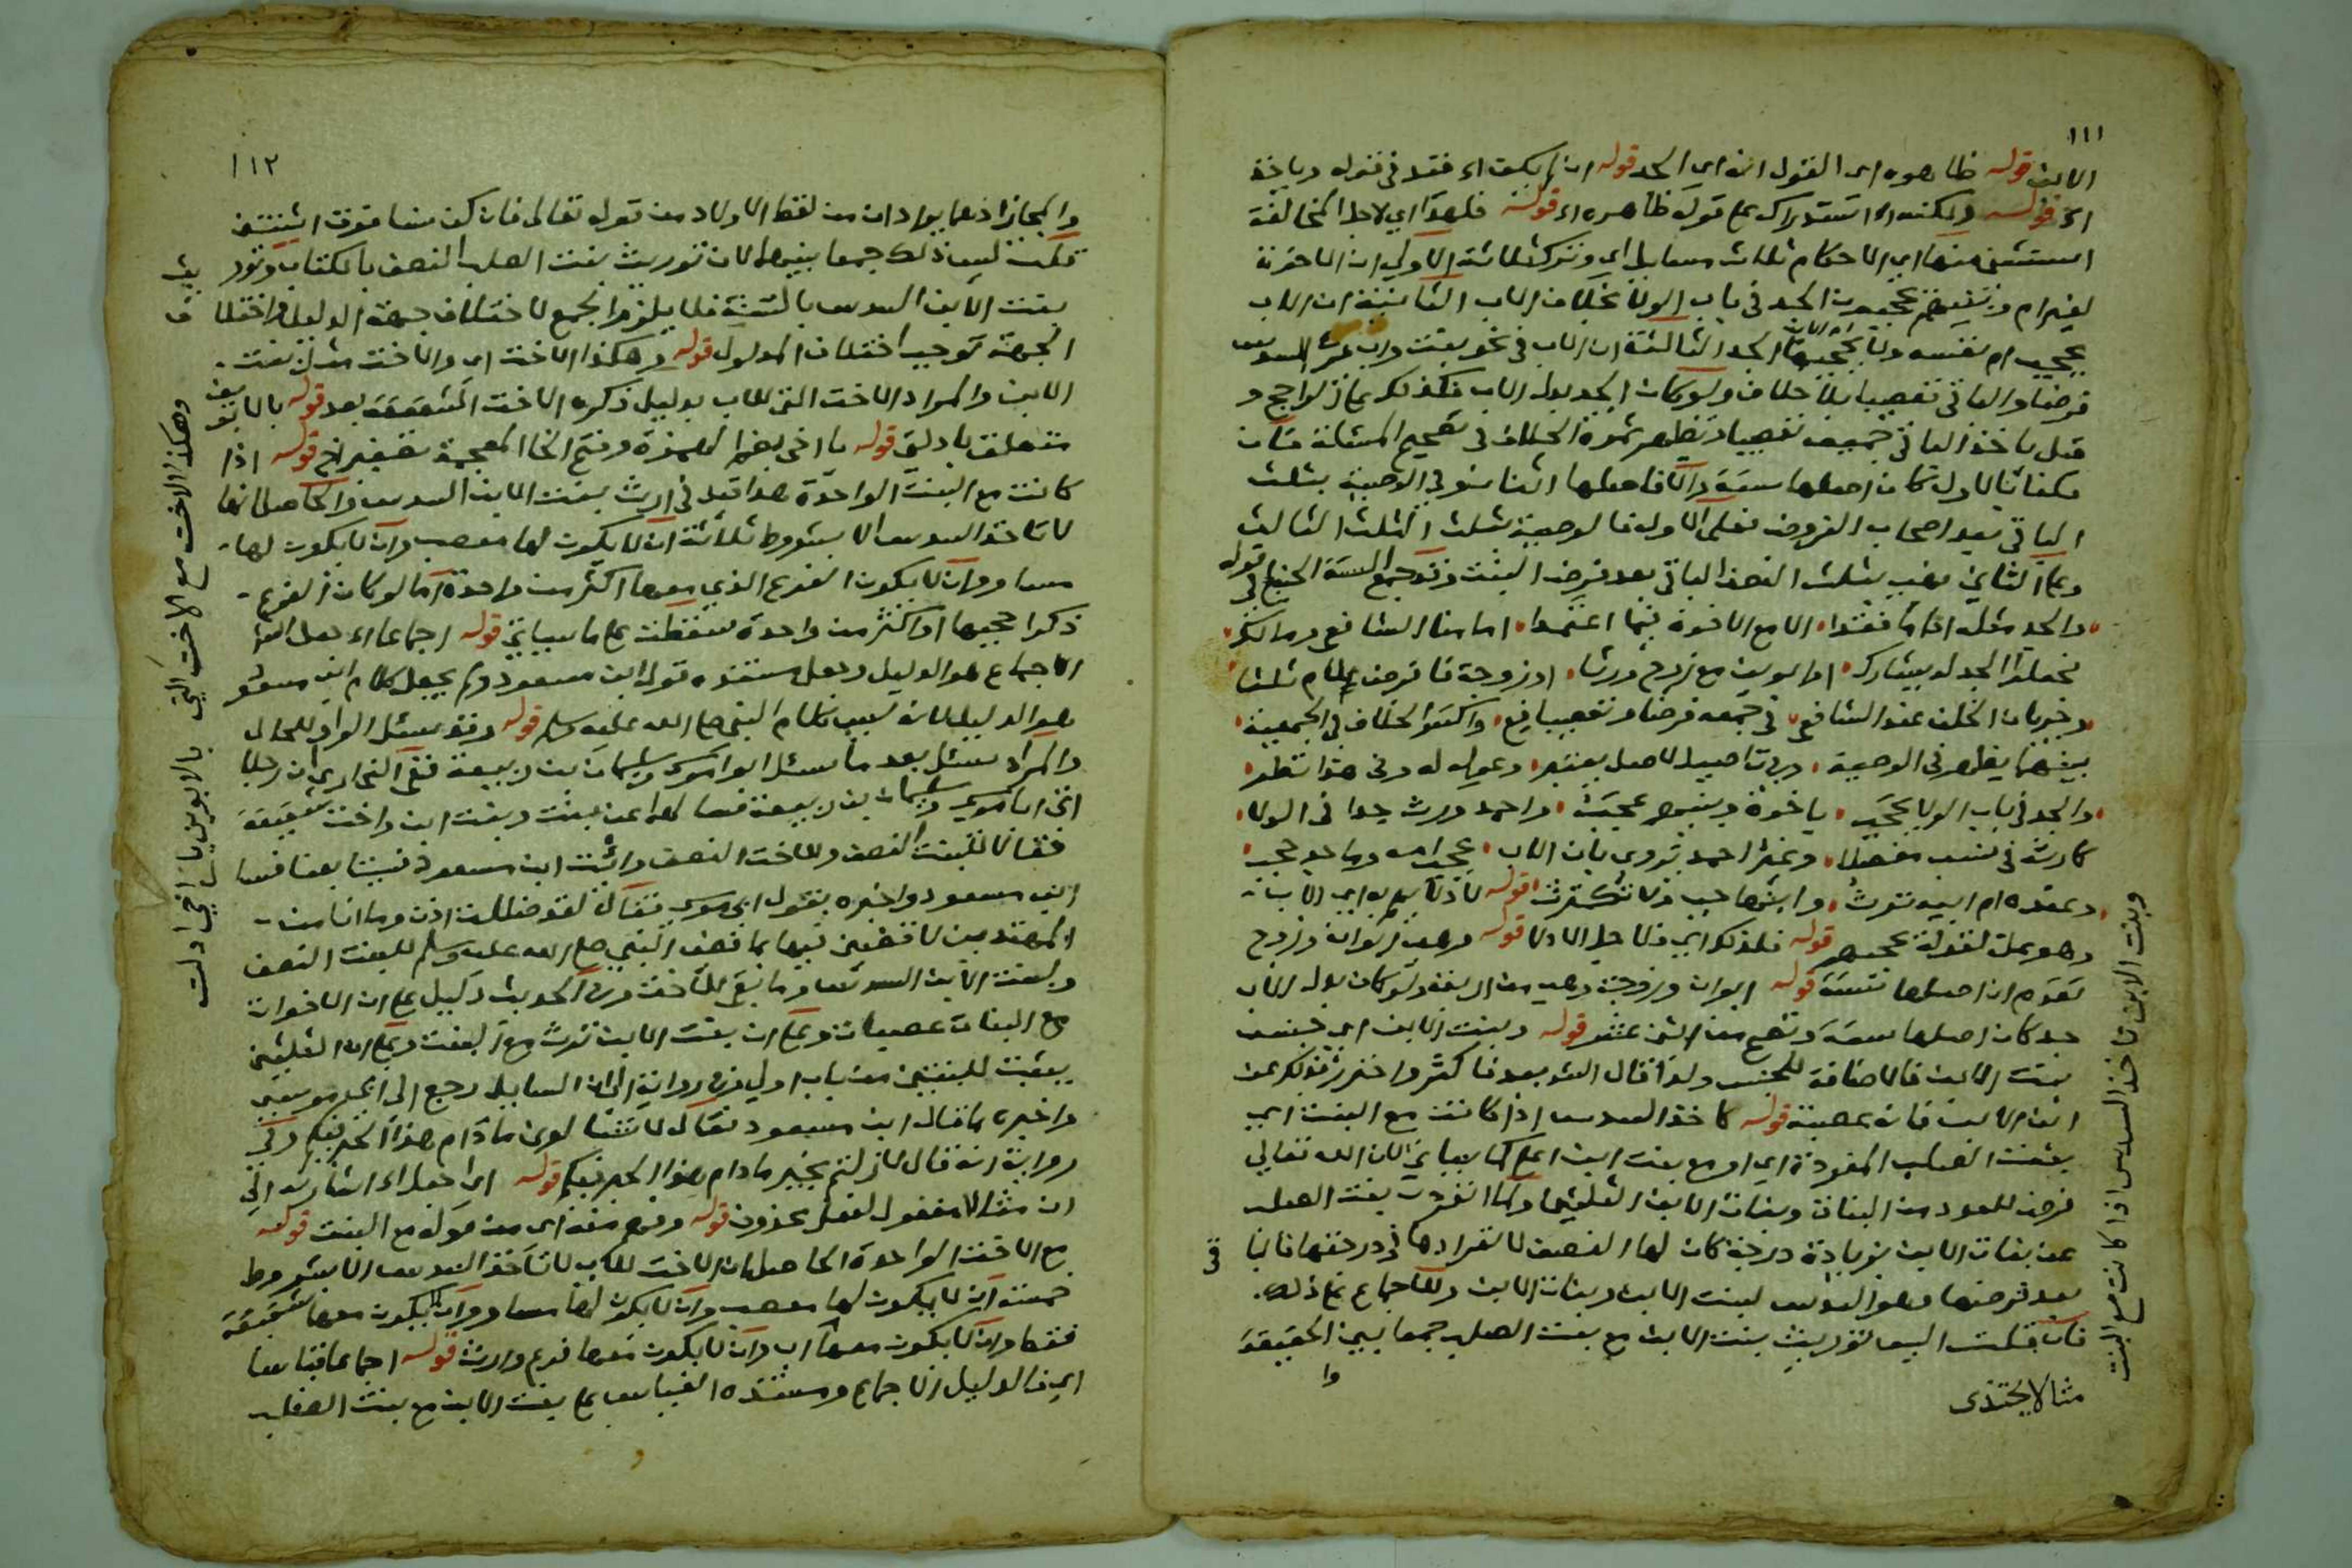 ١١١
الابن قوله ظاهره اي القول انه اي الجد قوله ان لم يكن اي فقد في قوله وياخذ
اي قوله ولكنه اي استدراك على قوله ظاهره اي قوله فلهذا اي لاجل المخالفة
استثنى منها اي الاحكام ثلاث مسايل اي وترك ثلاثة الاولى ان الاخوة
لغير ام وبنيهم يحجبون الجد في باب الولا بخلاف الاب الثانية ان الاب
يحجب ام نفسه ولا يحجبها الجد الثالثة ان الاب في نحو بنت واب يرث السدس
فرضا والباقي تعصيبا بلا خلاف ولو كان الجد بدل الاب فكذلك على الراجح و
قيل ياخذ الباقي جميعه تعصيبا وتظهر ثمرة الخلاف في تصحيح المسئلة فان
الاول كان اصلها ستة والا فاصلها اثنان وفي الوصية بثلث
الباقي بعد اصحاب الفروض فعلى الاول فالوصية بثلث الثلث الثالث
وعلى الثاني بثلث النصف الباقي بعد فرض البنت وقد جمع الستة قوله
والجد مثله اذا ما فقدا الا مع الاخوة فيما اعتمدا امامنا الشافعي ومالك
فجعلوا الجد له يشارك او ابوين مع زوج ورثا او زوجة فافرض للام ثلثا
وخلف عند الشافعي في جمعه فرضا وتعصيبا والخلف في الجمعية
بينهما يظهر في الوصية وفي تاصيل لاصل
والجد في باب الولا يحجب باخوة وبنيهم واحمد ورث جدا في الولا
كارثه في نسب مفصلا وعن احمد تروى بان الاب
وعنده ام ابيه تورث قوله
وهو علة لقوله يحجبهم قوله فلذلك اي فلاجل قوله وهي ابوان وزوج
تقدم ان اصلها ستة قوله ابوان وزوجة وهي من اربعة ولو كان بدل الاب
جد كان اصلها وتصح من اثني عشر قوله وبنت الابن اي جنس
بنت الابن فالاضافة للجنس ولذا قال الش بعد فاكثر واحترز بذلك عن
ابن الابن فانه عصبة قوله تاخذ السدس اذا كانت مع البنت اي
بنت الصلب المفردة اي او مع بنت ابن اعلى كما سياتي لان الله تعالى
فرض للعدد من البنات وبنات الابن الثلثين ولما انفردت بنت الصلب
عن بنات الابن بزيادة درجة كان لها النصف لانفرادها في درجتها فالباقي
بعد فرضها وهو السدس لبنت الابن وبنات الابن وللاجماع على ذلك
فان قلت اليس توريث بنت الابن مع بنت الصلب جمعا بين الحقيقة
وا
وبنت الابن تاخذ السدس اذا كانت مع البنت
مثالا يحتذى
١١٢
والمجاز اذ هما يرادان من لفظ الاولاد من قوله تعالى فان كن نسا فوق اثنتين
قلت ليس ذلك جمعا بينهما لان توريث بنت الصلب النصف بالكتاب وتوريث
بنت الابن السدس بالسنة فلا يلزم الجمع لاختلاف جهة الدليل واختلاف
الجهة توجب اختلاف المدلول قوله وهكذا الاخت اي والاخت مثل بنت
الابن والمراد الاخت التي للاب بدليل ذكره الاخت الشقيقة بعد قوله بالابوين
متعلق بادلت قوله يا اخي بضم الهمزة وفتح الخا المعجمة تصغير اخ قوله اذا
كانت مع البنت الواحدة هذا قيد في ارث بنت الابن السدس والحاصل انها
لا تاخذ السدس الا بشروط ثلاثة ان لا يكون لها معصب وان لا يكون لها
مساو وان لا يكون الفرع الذي معها اكثر من واحدة اما لو كان الفرع
ذكرا حجبها او اكثر من واحدة سقطت على ما سياتي قوله اجماعا اي جعل الش
الاجماع هو الدليل وجعل مستنده قول ابن مسعود ولم يجعل كلام ابن مسعود
هو الدليل لانه ليس كلام النبي صلى الله عليه وسلم قوله وقد سئل الواو للحال
والمراد سئل بعد ما سئل ابو موسى وسليمان بن ربيعة ففي البخاري ان رجلا
اتى ابا موسى وسليمان بن ربيعة فسالهما عن بنت وبنت ابن واخت شقيقة
فقالا للبنت النصف وللاخت النصف وائت ابن مسعود فسيتابعنا فسال
ابن مسعود واخبره بقول ابي موسى فقال لقد ضللت اذن وما انا من
المهتدين لاقضين فيها بما قضى النبي صلى الله عليه وسلم للبنت النصف
ولبنت الابن السدس وما بقي للاخت وفي الحديث دليل على ان الاخوات
مع البنات عصبات وعلى ان بنت الابن ترث مع البنت وعلى ان الثلثين
للبنتين من باب اولى وفي رواية ان السايل رجع الى ابي موسى
واخبره بما قال ابن مسعود فقال لا تسالوني ما دام هذا الحبر فيكم وفي
رواية انه قال لا زلتم بخير ما دام هذا الحبر فيكم قوله اي اشار به الى
ان مثالا مفعول لفعل محذوف قوله وفهم منه اي من قوله مع البنت قوله
مع الاخت الواحدة الحاصل ان الاخت للاب لا تاخذ السدس الا بشروط
خمسة ان لا يكون لها معصب وان لا يكون لها مساو وان يكون معها شقيقة
فقط وان لا يكون معها اب وان لا يكون معها فرع وارث قوله اجماعا قياسا
اي فالدليل الاجماع ومستنده القياس على بنت الابن مع بنت الصلب
وهكذا الاخت مع الاخت التي بالابوين يا اخي ادلت